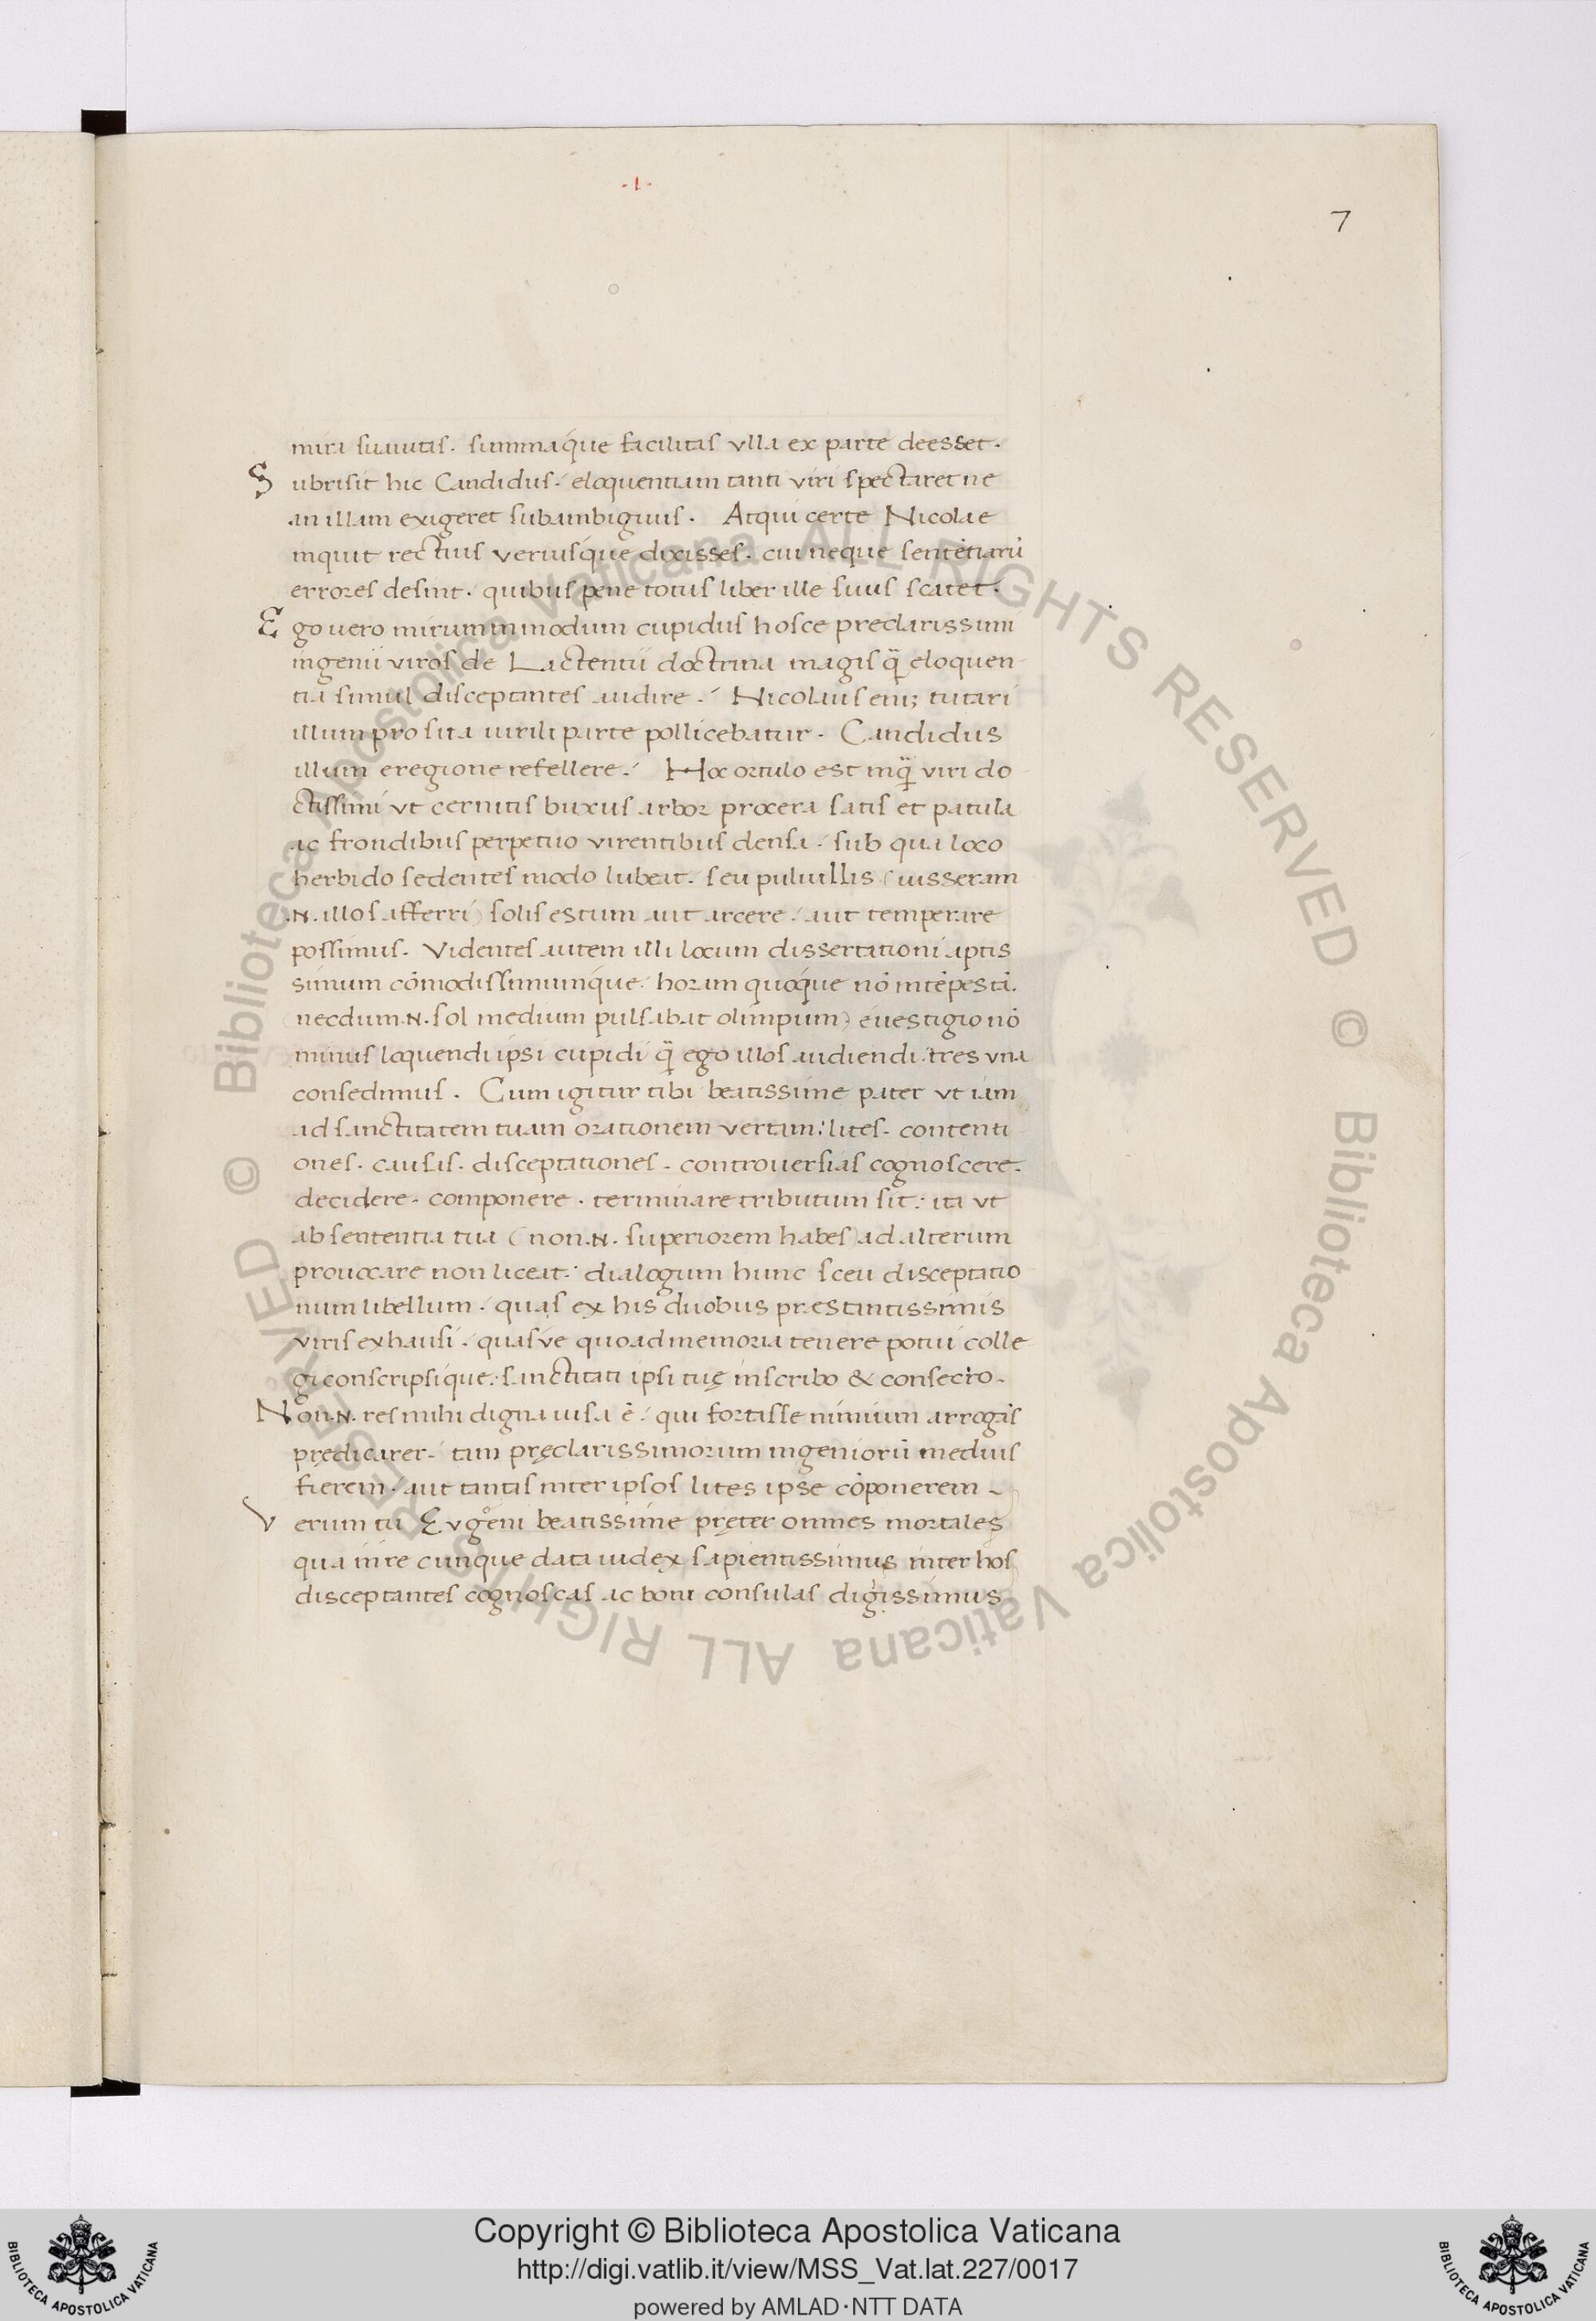 ·I·
7
mira suauitas. summaq́ue facilitas vlla ex parte deesset.
Subrisit hic Candidus. eloquentiam tanti viri spectaret ne
an illam exigeret subambiguus. Atqui certe Nicolae
inquit rectius veriusq́ue dixisses. cui neque sentētiarū
errores desint. quibus pene totus liber ille suus scatet.
Ego uero mirum in modum cupidus hosce preclarissimi
ingenii viros de Lactentii doctrina magis q̄ eloquen
tia simul disceptantes audire. Nicolaus eniʒ tutari
illum pro sua uirili parte pollicebatur. Candidus
illum e regione refellere. Hoc ortulo est inq̄ viri do
ctissimi vt cernitis buxus arbor procera satis et patula
ac frondibus perpetuo virentibus densa. sub qua loco
herbido sedentes modo lubeat. seu puluillis (iusseram
.N. illos afferri) solis estum aut arcere. aut temperare
possimus. Videntes autem illi locum dissertationi aptis
simum cōmodissimumq́ue. horam quoq́ue nō intēpestā.
(necdum .N. sol medium pulsabat olimpum) euestigio nō
minus loquendi ipsi cupidi q̄ ego illos audiendi. tres vna
consedimus. Cum igitur tibi beatissime pater vt iam
ad sanctitatem tuam orationem vertam: lites. contenti
ones. causas. disceptationes. controuersias cognoscere.
decidere. componere. terminare tributum sit: ita vt
ab sententia tua (non .N. superiorem habes) ad alterum
prouocare non liceat: dialogum hunc sceu disceptatio
num libellum. quas ex his duobus præstantissimis
viris exhausi. quas ve quoad memoria tenere potui colle
gi conscripsique. sanctitati ipsi tuę inscribo & consecro.
Non .N. res mihi digna uisa ē. qui fortasse nimium arrogās
prędicarer. tam pręclarissimorum ingeniorū medius
fierem. aut tantas inter ipsos lites ipse cōponerem.
Verum tu Eugeni beatissime pręter omnes mortales
qua in re cunque data iudex sapientissimus inter hos
disceptantes cognoscas ac boni consulas digissimus
© Biblioteca Apostolica Vaticana ALL RIGHTS RESERVED © Biblioteca Apostolica Vaticana ALL RIGHTS RESERVED
Copyright © Biblioteca Apostolica Vaticana
http://digi.vatlib.it/view/MSS_Vat.lat.227/0017
powered by AMLAD·NTT DATA
BIBLIOTECA APOSTOLICA VATICANA
BIBLIOTECA APOSTOLICA VATICANA